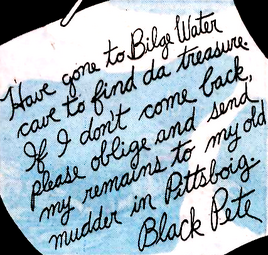 Have gone to Bilge Water
cave to find da treasure.
If I don't come back,
please oblige and send
my remains to my old
mudder in Pittsboig.
Black Pete